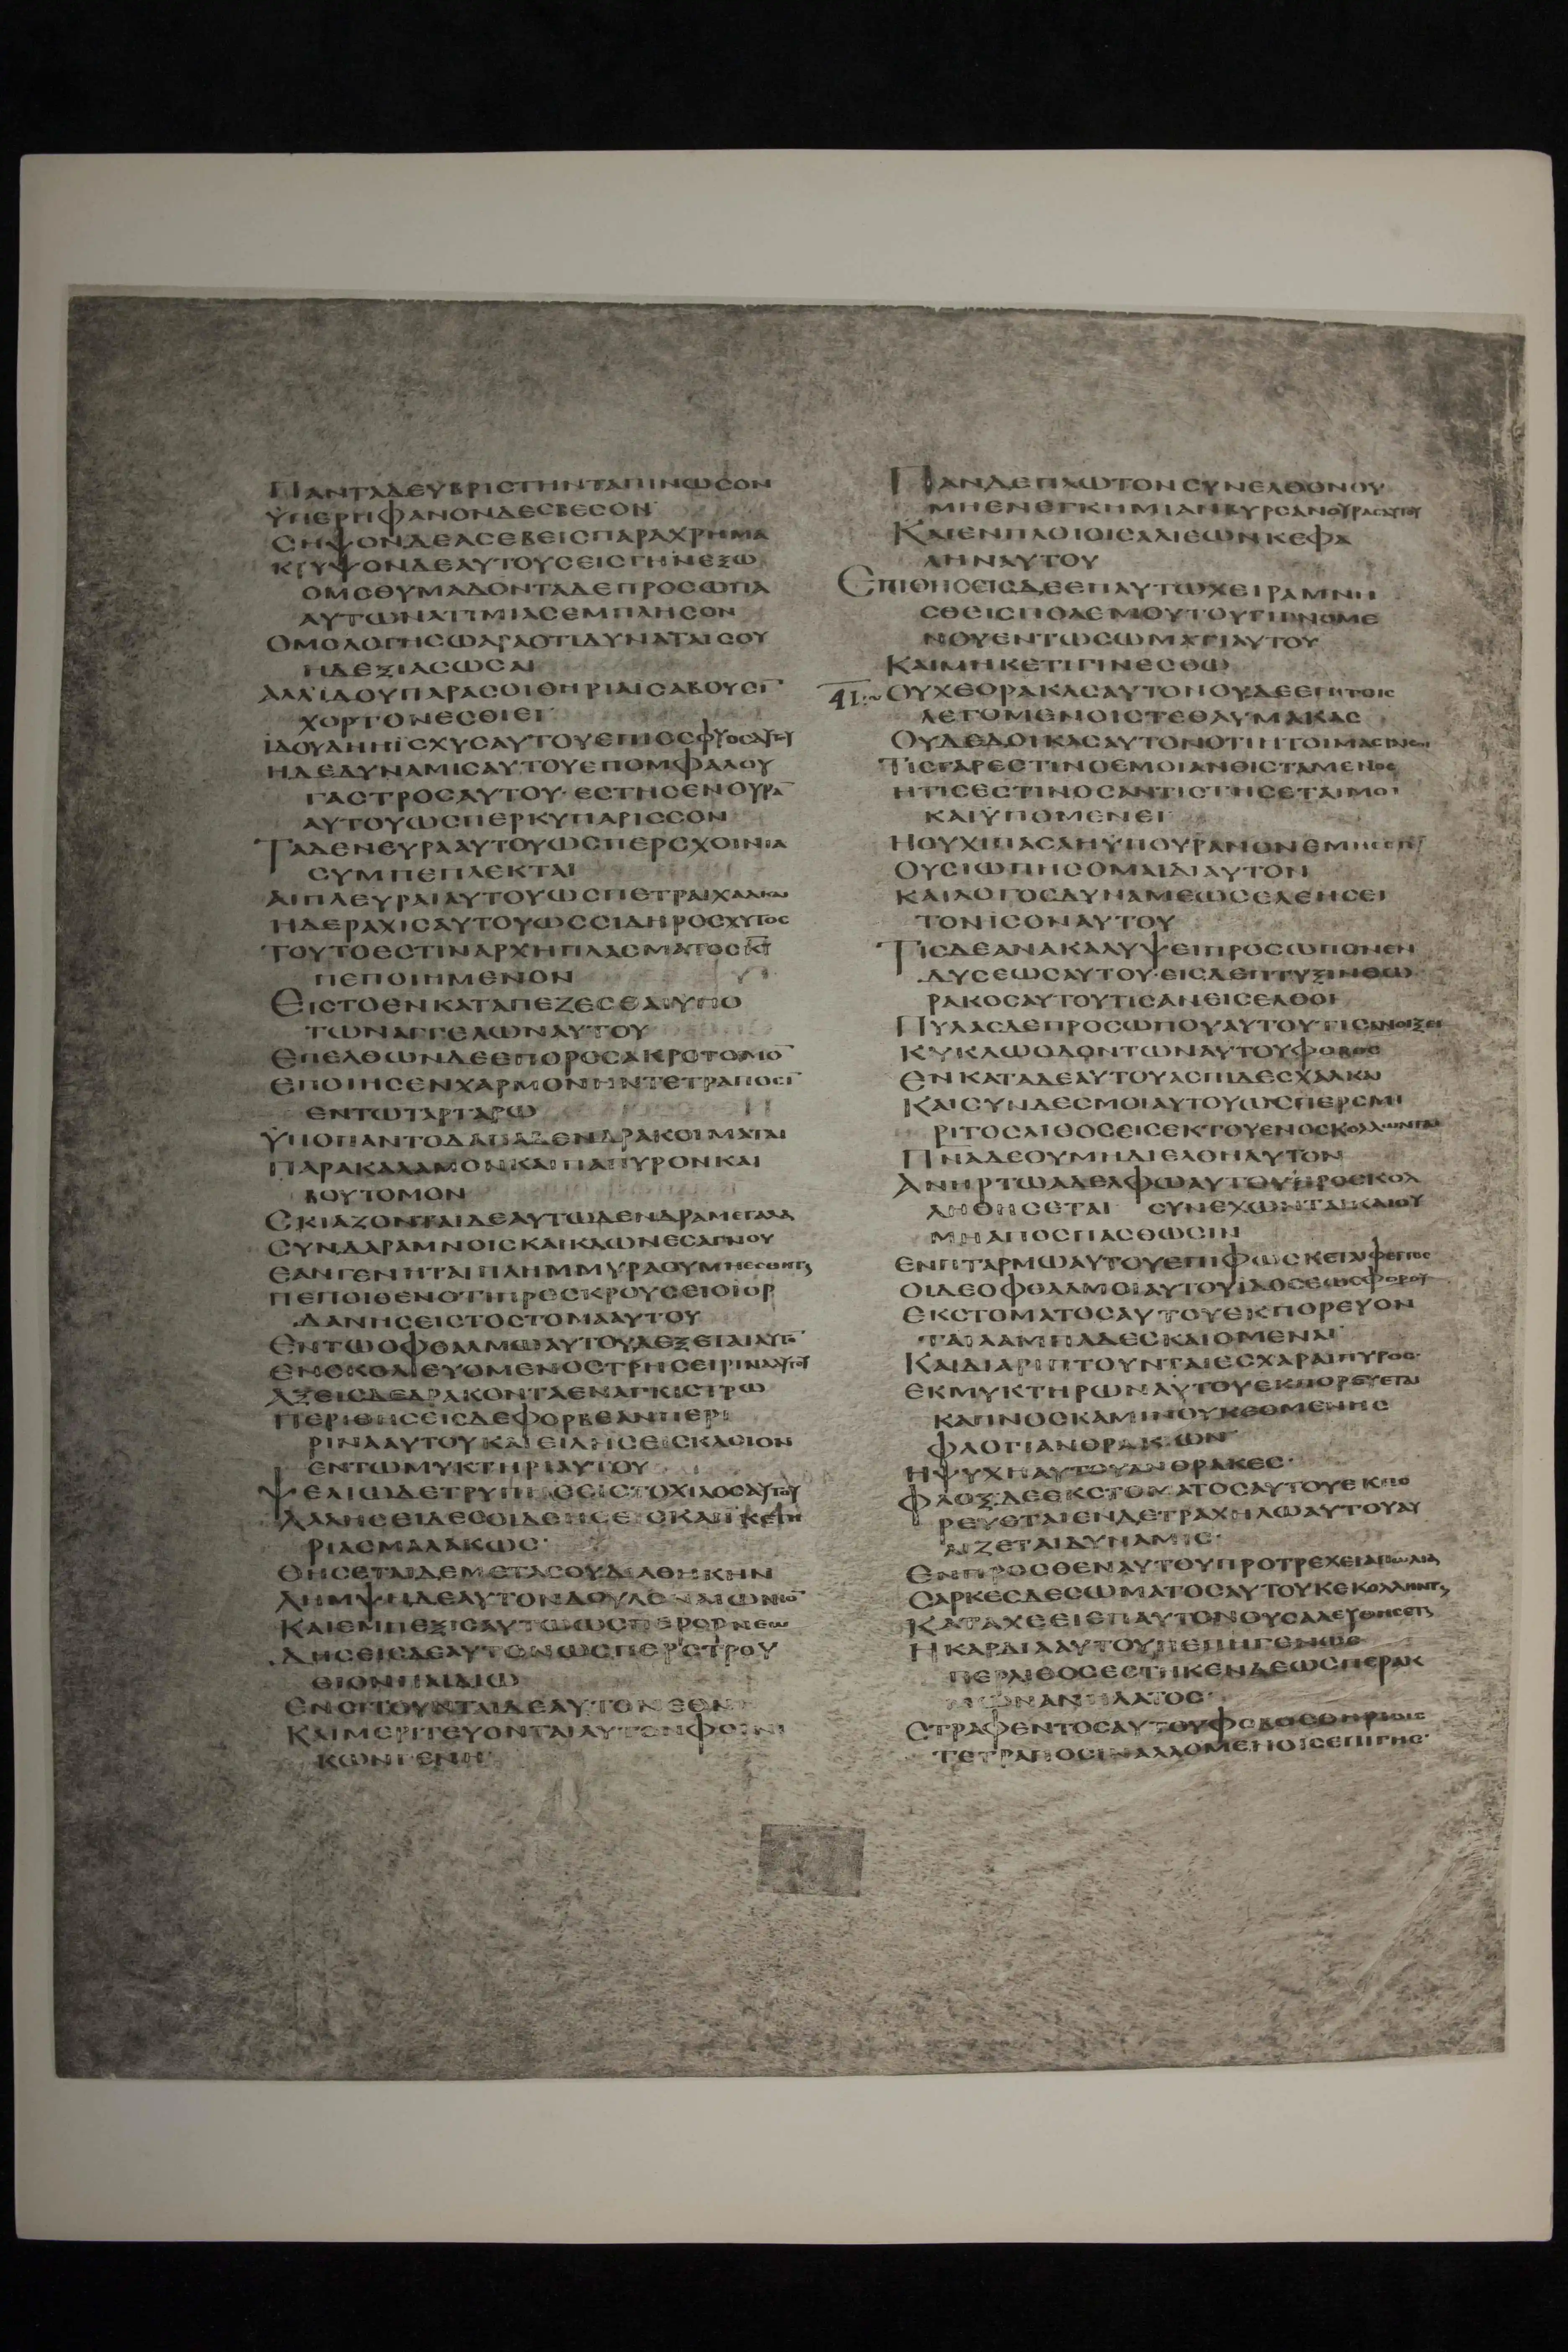 ΠΑΝΤΑΔΕΥΒΡΙСΤΗΝΤΑΠΙΝΩСΟΝ
ΫΠΕΡΗΦΑΝΟΝΔΕСΒΕСΟΝ
СΗΨΟΝΔΕΑСΕΒΕΙСΠΑΡΑΧΡΗΜΑ
ΚΡΥΨΟΝΔΕΑΥΤΟΥСΕΙСΓΗΝΕΞΩ
ΟΜΟΘΥΜΑΔΟΝΤΑΔΕΠΡΟСΩΠΑ
ΑΥΤΩΝΑΤΙΜΙΑСΕΜΠΛΗСΟΝ
ΟΜΟΛΟΓΗСΩΑΡΑΟΤΙΔΥΝΑΤΑΙСΟΥ
ΗΔΕΞΙΑСΩСΑΙ
ΑΛΛΙΔΟΥΠΑΡΑСΟΙΘΗΡΙΑΙСΑΒΟΥСΙ̅
ΧΟΡΤΟΝΕСΘΙΕΙ
ΙΔΟΥΔΗΗΪСΧΥСΑΥΤΟΥΕΠΟСΦΥΟСΑΥΤΟΥ
ΗΔΕΔΥΝΑΜΙСΑΥΤΟΥΕΠΟΜΦΑΛΟΥ
ΓΑСΤΡΟСΑΥΤΟΥ·ΕСΤΗСΕΝΟΥΡΑ̅
ΑΥΤΟΥΩСΠΕΡΚΥΠΑΡΙССΟΝ
ΤΑΔΕΝΕΥΡΑΑΥΤΟΥΩСΠΕΡСΧΟΙΝΙΑ
СΥΜΠΕΠΛΕΚΤΑΙ
ΑΙΠΛΕΥΡΑΙΑΥΤΟΥΩСΠΕΤΡΑΙΧΑΛΚΑΙ
ΗΔΕΡΑΧΙСΑΥΤΟΥΩССΙΔΗΡΟСΧΥΤΟС
ΤΟΥΤΟΕСΤΙΝΑΡΧΗΠΛΑСΜΑΤΟСΚ̅Υ̅
ΠΕΠΟΙΗΜΕΝΟΝ
ΕΙСΤΟΕΝΚΑΤΑΠΕΖΕСΘΑΙΥΠΟ
ΤΩΝΑΓΓΕΛΩΝΑΥΤΟΥ
ΕΠΕΛΘΩΝΔΕΕΠΟΡΟСΑΚΡΟΤΟΜΟ̅
ΕΠΟΙΗСΕΝΧΑΡΜΟΝΗΝΤΕΤΡΑΠΟСΙ̅
ΕΝΤΩΤΑΡΤΑΡΩ
ΫΠΟΠΑΝΤΟΔΑΠΑΔΕΝΔΡΑΚΟΙΜΑΤΑΙ
ΠΑΡΑΚΑΛΑΜΟΝΚΑΙΠΑΠΥΡΟΝΚΑΙ
ΒΟΥΤΟΜΟΝ
СΚΙΑΖΟΝΤΑΙΔΕΑΥΤΩΔΕΝΔΡΑΜΕΓΑΛΑ
СΥΝΔΑΡΑΜΝΟΙСΚΑΙΚΛΩΝΕСΑΓΝΟΥ
ΕΑΝΓΕΝΗΤΑΙΠΛΗΜΜΥΡΑΟΥΜΗ
ΠΕΠΟΙΘΕΝΟΤΙΠΡΟСΚΡΟΥСΕΙΟΙΟΡ
ΔΑΝΗСΕΙСΤΟСΤΟΜΑΑΥΤΟΥ
ΕΝΤΩΟΦΘΑΛΜΩΑΥΤΟΥΔΕΞΕΤΑΙΑΥΤΟ̅
ΕΝСΚΟΛΙΕΥΟΜΕΝΟСΤΡΗСΕΙΡΙΝΑΑΥΤΟΥ
ΑΞΕΙСΔΕΔΡΑΚΟΝΤΑΕΝΑΓΚΙСΤΡΩ
ΠΕΡΙΘΗСΕΙСΔΕΦΟΡΒΕΑΝΠΕΡΙ
ΡΙΝΑΑΥΤΟΥΚΑΙΕΙΛΗСΕΙСΚΛΟΙΟΝ
ΕΝΤΩΜΥΚΤΗΡΙΑΥΤΟΥ
ΨΕΛΙΩΔΕΤΡΥΠΗСΕΙСΤΟΧΙΛΟСΑΥΤΟΥ
ΛΑΛΗСΕΙΔΕСΟΙΔΕΗСΕΙС
ΡΙΑСΜΑΛΑΚΩС·
ΘΗСΕΤΑΙΔΕΜΕΤΑСΟΥΔΙΑΘΗΚΗΝ
ΛΗΜΨΗΔΕΑΥΤΟΝΔΟΥΛΟΝΑΙΩΝΙΟ̅
ΠΑΙΞΗ
ΔΗСΕΙСΔΕΑΥΤΟΝΩСΠΕΡСΤΡΟΥ
ΘΙΟΝΠΑΙΔΙΩ
ΕΝСΙΤΟΥΝΤΑΙΔΕΑΥΤΟΝΕΘΝ
ΚΑΙΜΕΡΙΤΕΥΟΝΤΑΙΑΥΤΟΝΦΟΙΝΙ
ΚΩΝΓΕΝΗ
ΠΑΝΔΕΠΛΩΤΟΝСΥΝΕΛΘΟΝΟΥ
ΜΗΕΝΕΓΚΗΜΙΑΝΒΥΡСΑΝΟΥΡΑСΑΥΤΟΥ
ΚΑΙΕΝΠΛΟΙΟΙСΑΛΙΕΩΝΚΕΦΑ
ΛΗΝΑΥΤΟΥ
ΕΠΙΘΗСΕΙСΔΕΕΠΑΥΤΩΧΕΙΡΑΜΝΗ
СΘΕΙСΠΟΛΕΜΟΥΤΟΥΓΙΝΟΜΕ
ΝΟΥΕΝΤΩСΩΜΑΤΙΑΥΤΟΥ
ΚΑΙΜΗΚΕΤΙΓΙΝΕСΘΩ
41:~ ΟΥΧΕΟΡΑΚΑСΑΥΤΟΝΟΥΔΕΕΠΙΤΟΙС
ΛΕΓΟΜΕΝΟΙСΤΕΘΑΥΜΑΚΑС
ΟΥΔΕΔΟΙΚΑСΑΥΤΟΝΟΤΙΗΤΟΙΜΑСΤΑΙΜΟΙ
ΤΙСΓΑΡΕСΤΙΝΟΕΜΟΙΑΝΘΙСΤΑΜΕΝΟС
ΗΤΙСΕСΤΙΝΟСΑΝΤΙСΤΗСΕΤΑΙΜΟΙ
ΚΑΙΫΠΟΜΕΝΕΙ
ΗΟΥΧΙΠΑСΑΗΫΠΟΥΡΑΝΟΝΕΜΗΕСΤΙ̅
ΟΥСΙΩΠΗСΟΜΑΙΔΙΑΥΤΟΝ
ΚΑΙΛΟΓΟСΔΥΝΑΜΕΩСΕΛΕΗСΕΙ
ΤΟΝΙСΟΝΑΥΤΟΥ
ΤΙСΔΕΑΝΑΚΑΛΥΨΕΙΠΡΟСΩΠΟΝΕΝ
ΔΥСΕΩСΑΥΤΟΥ·ΕΙСΔΕΠΤΥΞΙΝΘΩ
ΡΑΚΟСΑΥΤΟΥΤΙСΑΝΕΙСΕΛΘΟΙ
ΠΥΛΑСΔΕΠΡΟСΩΠΟΥΑΥΤΟΥΤΙСΑΝΟΙΞΕΙ
ΚΥΚΛΩΟΔΟΝΤΩΝΑΥΤΟΥΦΟΒΟС
ΕΝΚΑΤΑΔΕΑΥΤΟΥΑСΠΙΔΕСΧΑΛΚΑΙ
ΚΑΙСΥΝΔΕСΜΟΙΑΥΤΟΥΩСΠΕΡСΜΙ
ΡΙΤΟСΛΙΘΟСΕΙСΕΚΤΟΥΕΝΟСΚΟΛΛΩΝΤΑΙ
ΠΝΑΔΕΟΥΜΗΔΙΕΛΘΗΑΥΤΟΝ
ΑΝΗΡΤΩΑΔΕΛΦΩΑΥΤΟΥΠΡΟСΚΟΛ
ΛΗΘΗСΕΤΑΙ СΥΝΕΧΩΝΤΑΙΚΑΙΟΥ
ΜΗΑΠΟСΠΑСΘΩСΙΝ
ΕΝΠΤΑΡΜΩΑΥΤΟΥΕΠΙΦΩСΚΕΤΑΙΦΕΓΓΟС
ΟΙΔΕΟΦΘΑΛΜΟΙΑΥΤΟΥΙΔΟСΕΩСΦΟΡΟΥ
ΕΚСΤΟΜΑΤΟСΑΥΤΟΥΕΚΠΟΡΕΥΟΝ
ΤΑΙΛΑΜΠΑΔΕСΚΑΙΟΜΕΝΑΙ
ΚΑΙΔΙΑΡΙΠΤΟΥΝΤΑΙΕСΧΑΡΑΙΠΥΡΟС·
ΕΚΜΥΚΤΗΡΩΝΑΥΤΟΥΕΚΠΟΡΕΥΕΤΑΙ
ΚΑΠΝΟСΚΑΜΙΝΟΥΚΕΟΜΕΝΗС
ΦΛΟΓΙΑΝΘΡΑΚΩΝ
ΗΨΥΧΗΑΥΤΟΥΑΝΘΡΑΚΕС·
ΦΛΟΞΔΕΕΚСΤΟΜΑΤΟСΑΥΤΟΥΕΚΠΟ
ΡΕΥΕΤΑΙΕΝΔΕΤΡΑΧΗΛΩΑΥΤΟΥΑΥ
ΛΙΖΕΤΑΙΔΥΝΑΜΙС·
ΕΝΠΡΟСΘΕΝΑΥΤΟΥΠΡΟΤΡΕΧΕΙΑΠΩΛΙΑ
СΑΡΚΕСΔΕСΩΜΑΤΟСΑΥΤΟΥΚΕΚΟΛΛΗΝΤ
ΚΑΤΑΧΕΕΙΕΠΑΥΤΟΝΟΥСΑΛΕΥΘΗСΕΤ
ΗΚΑΡΔΙΑΑΥΤΟΥΠΕΠΗΓΕΝΩС
ΠΕΡΛΙΘΟСΕСΤΗΚΕΝΔΕΩСΠΕΡΑΚ
ΜΩΝΑΝΗΛΑΤΟС·
СΤΡΑΦΕΝΤΟСΑΥΤΟΥΦΟΒΟСΘΗΡΙΟΙС
ΤΕΤΡΑΠΟСΙΝΑΛΛΟΜΕΝΟΙСΕΠΙΓΗС·